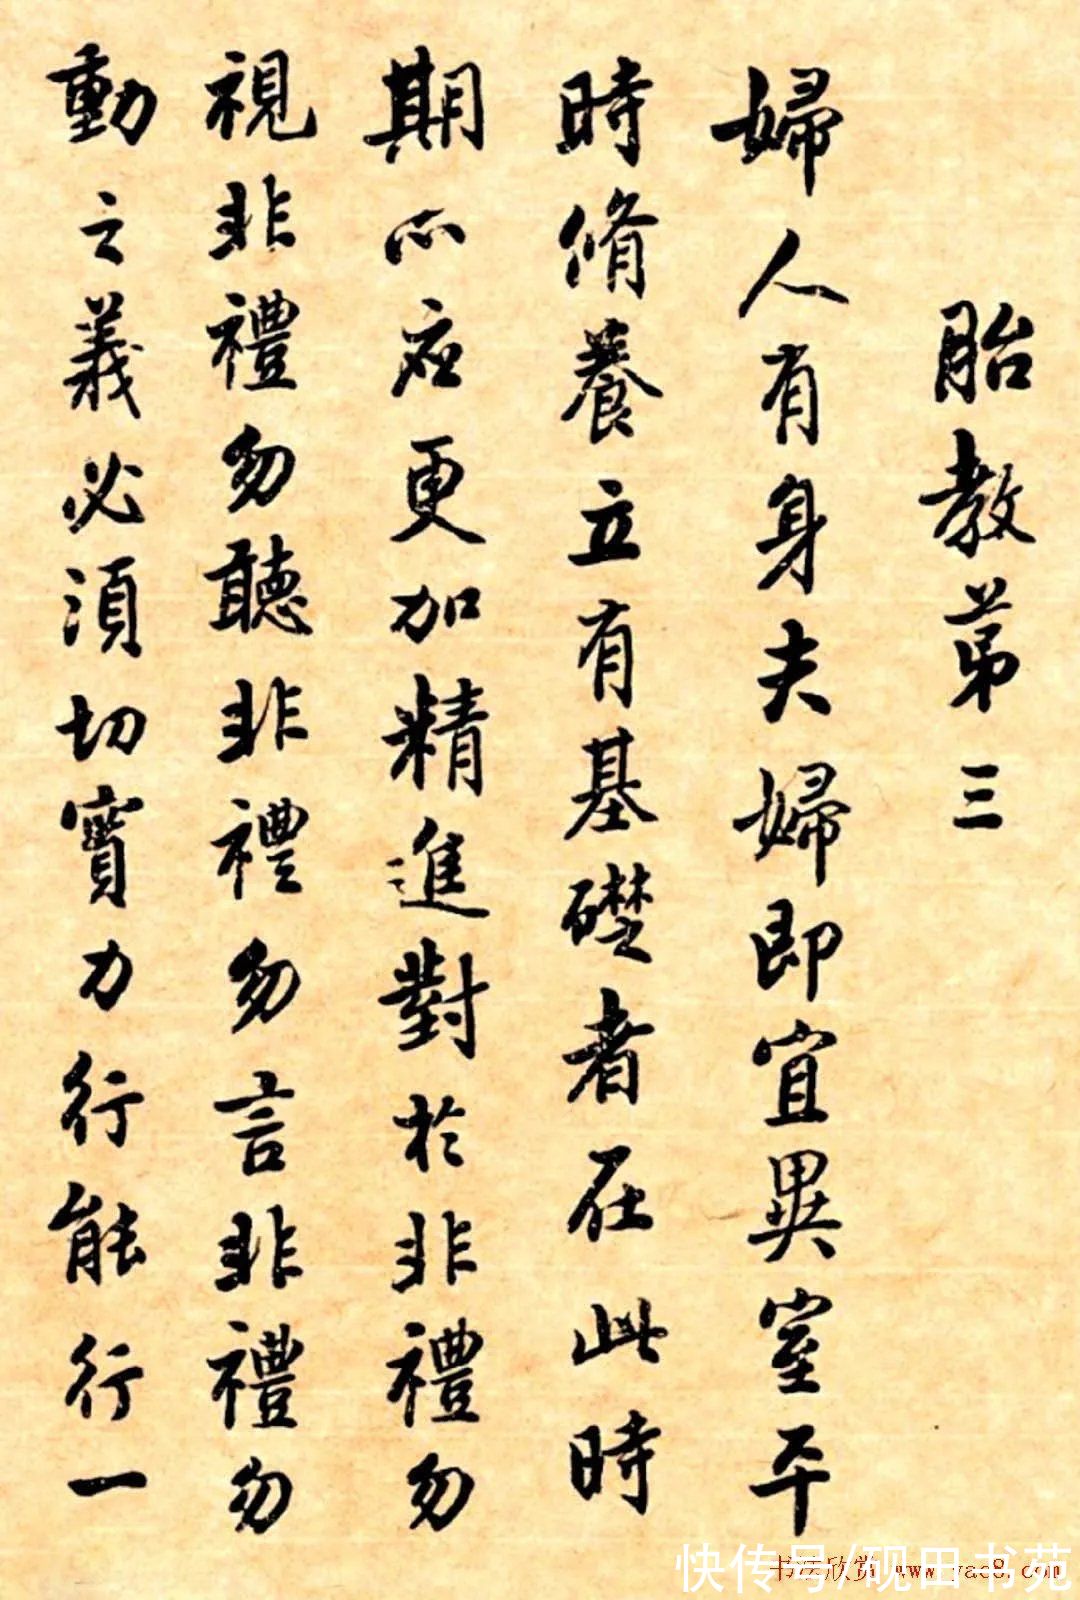 胎教第三
婦人有身夫婦即宜異室平
時脩養立有基礎者在此時
期心應更加精進對於非禮勿
視非禮勿聽非禮勿言非禮勿
動之義必須切實力行能行一
书法欣赏 www.yac8.com
快传号/砚田书苑